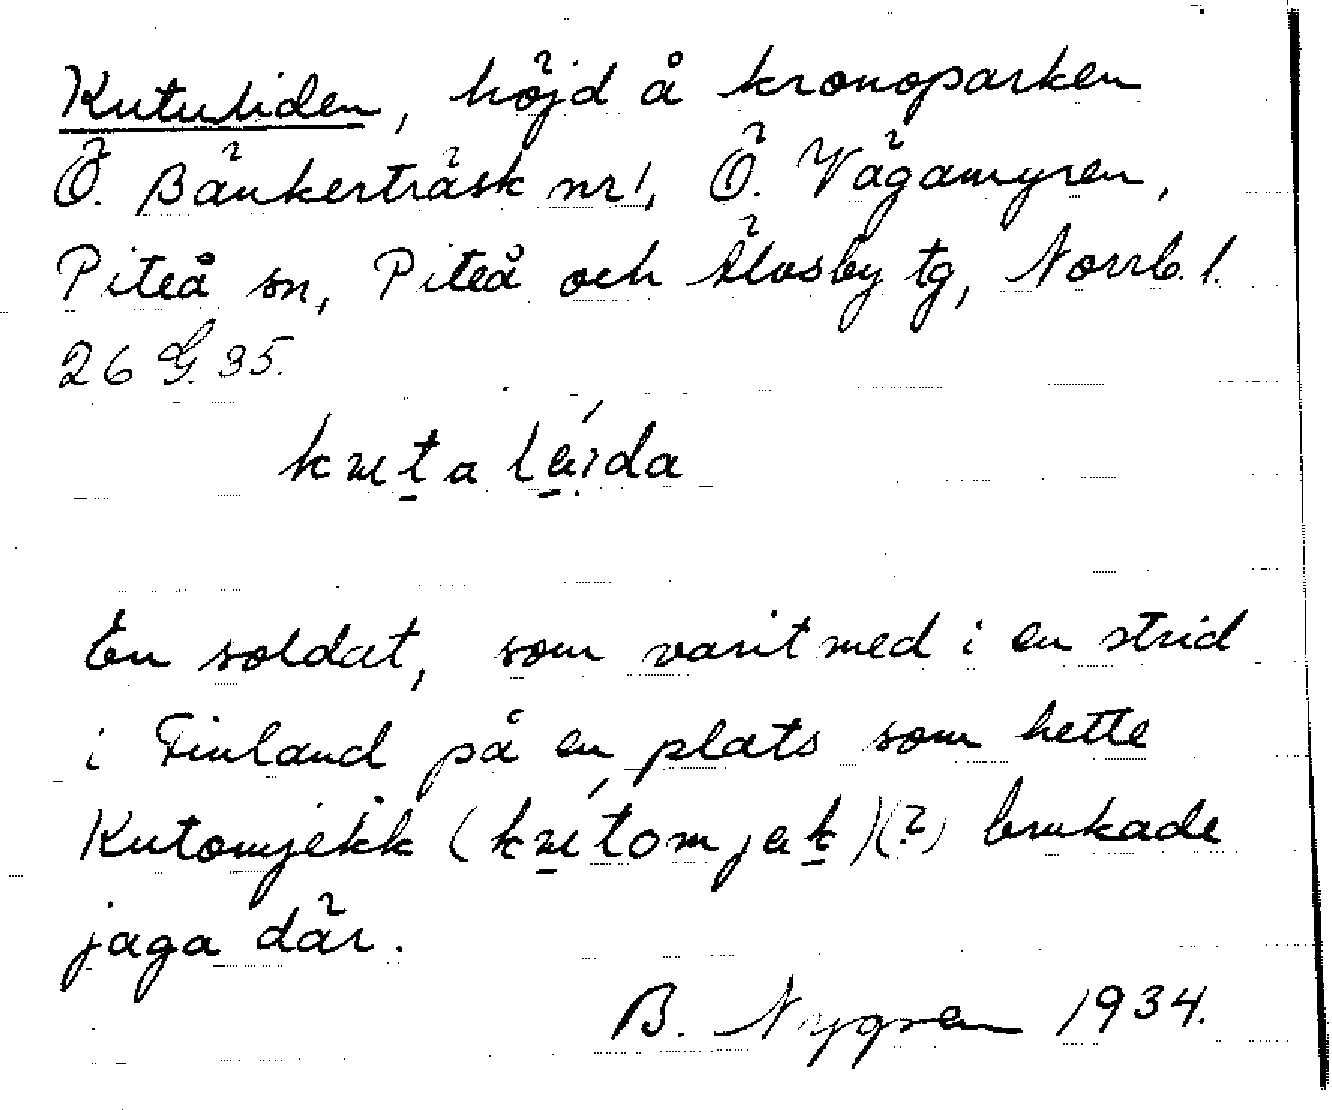 Kutuliden, höjd å kronoparken
Ö. Bänkerträsk nr 1, Ö. Vägamyren,
Piteå sn, Piteå och Älvsby tg, Norrb. l.
26 G. 35.
kuta läida
En soldat, som varit med i en strid
i Finland på en plats som hette
Kutomjekk (kutomjak) (?) brukade
jaga där.
B. Nygren 1934.